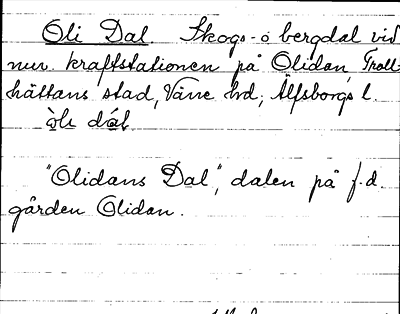 Oli Dal Skogs- o bergdal vid
nuv. kraftstationen på Olidan, Troll-
hättans stad, Väne hd, Älfsborgs l.
òli dál
"Olidans Dal", dalen på f.d.
gården Olidan.